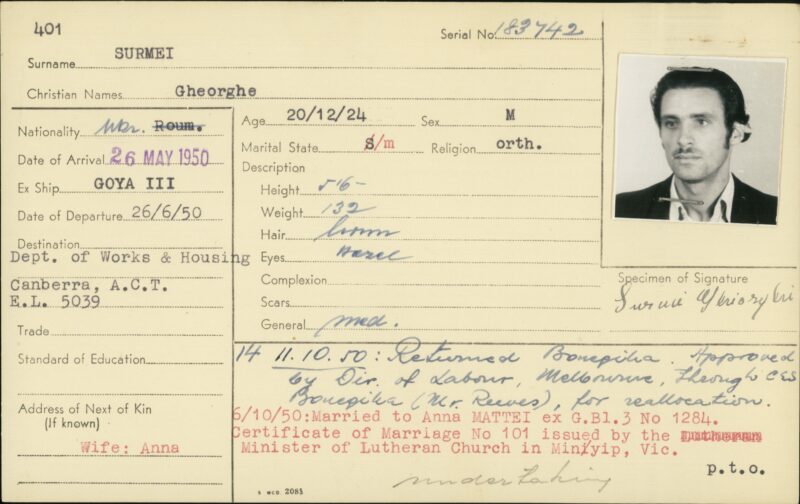 401
Serial No. 183742
Surname SURMEI
Christian Names Gheorghe
Nationality Ukr. Roum.
Age 20/12/24 Sex M
Date of Arrival 26 MAY 1950
Marital State S/m Religion orth.
Ex Ship GOYA III
Description
Height 5'6-
Date of Departure 26/6/50
Weight 132
Hair brown
Destination
Dept. of Works & Housing
Eyes Hazel
Canberra, A.C.T.
Complexion
E.L. 5039
Scars
Specimen of Signature
Surmei
Trade
General med.
Standard of Education
14 11.10.50: Returned Bonegilla. Approved
by Dir. of Labour, Melbourne, through CES
Bonegilla (Mr. Reeves), for reallocation.
Address of Next of Kin
(If known)
Wife: Anna
6/10/50:Married to Anna MATTEI ex G.Bl.3 No 1284.
Certificate of Marriage No 101 issued by the Lutheran
Minister of Lutheran Church in Minyip, Vic.
p.t.o.
undertaking
5 MCD 2085